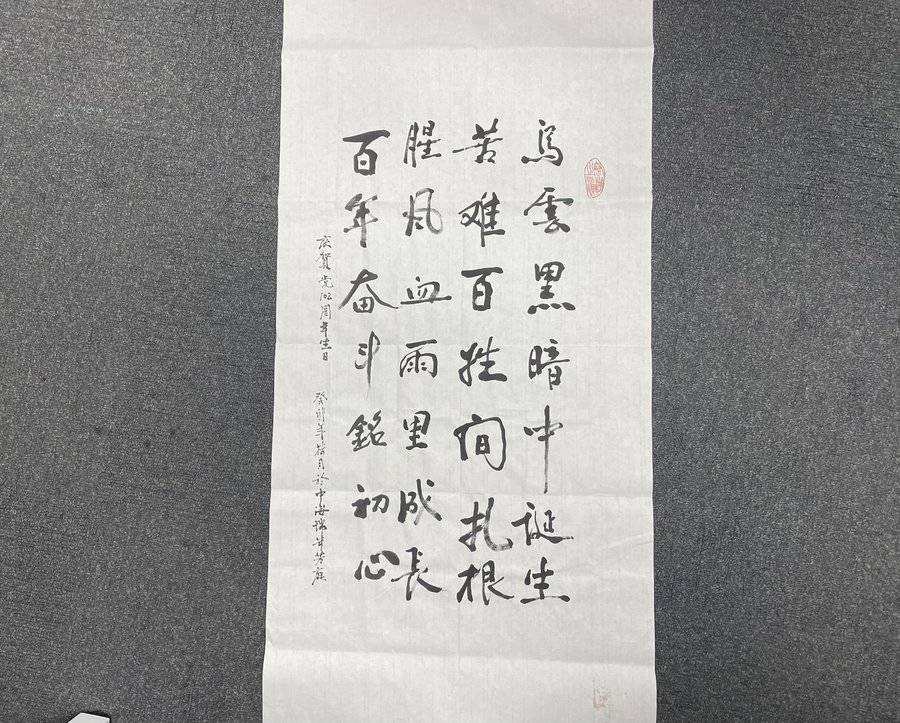 烏雲黑暗中诞生
苦难百姓间扎根
腥风血雨里成長
百年奋斗銘初心
庆贺党102周年生日
癸卯年荷月於中海